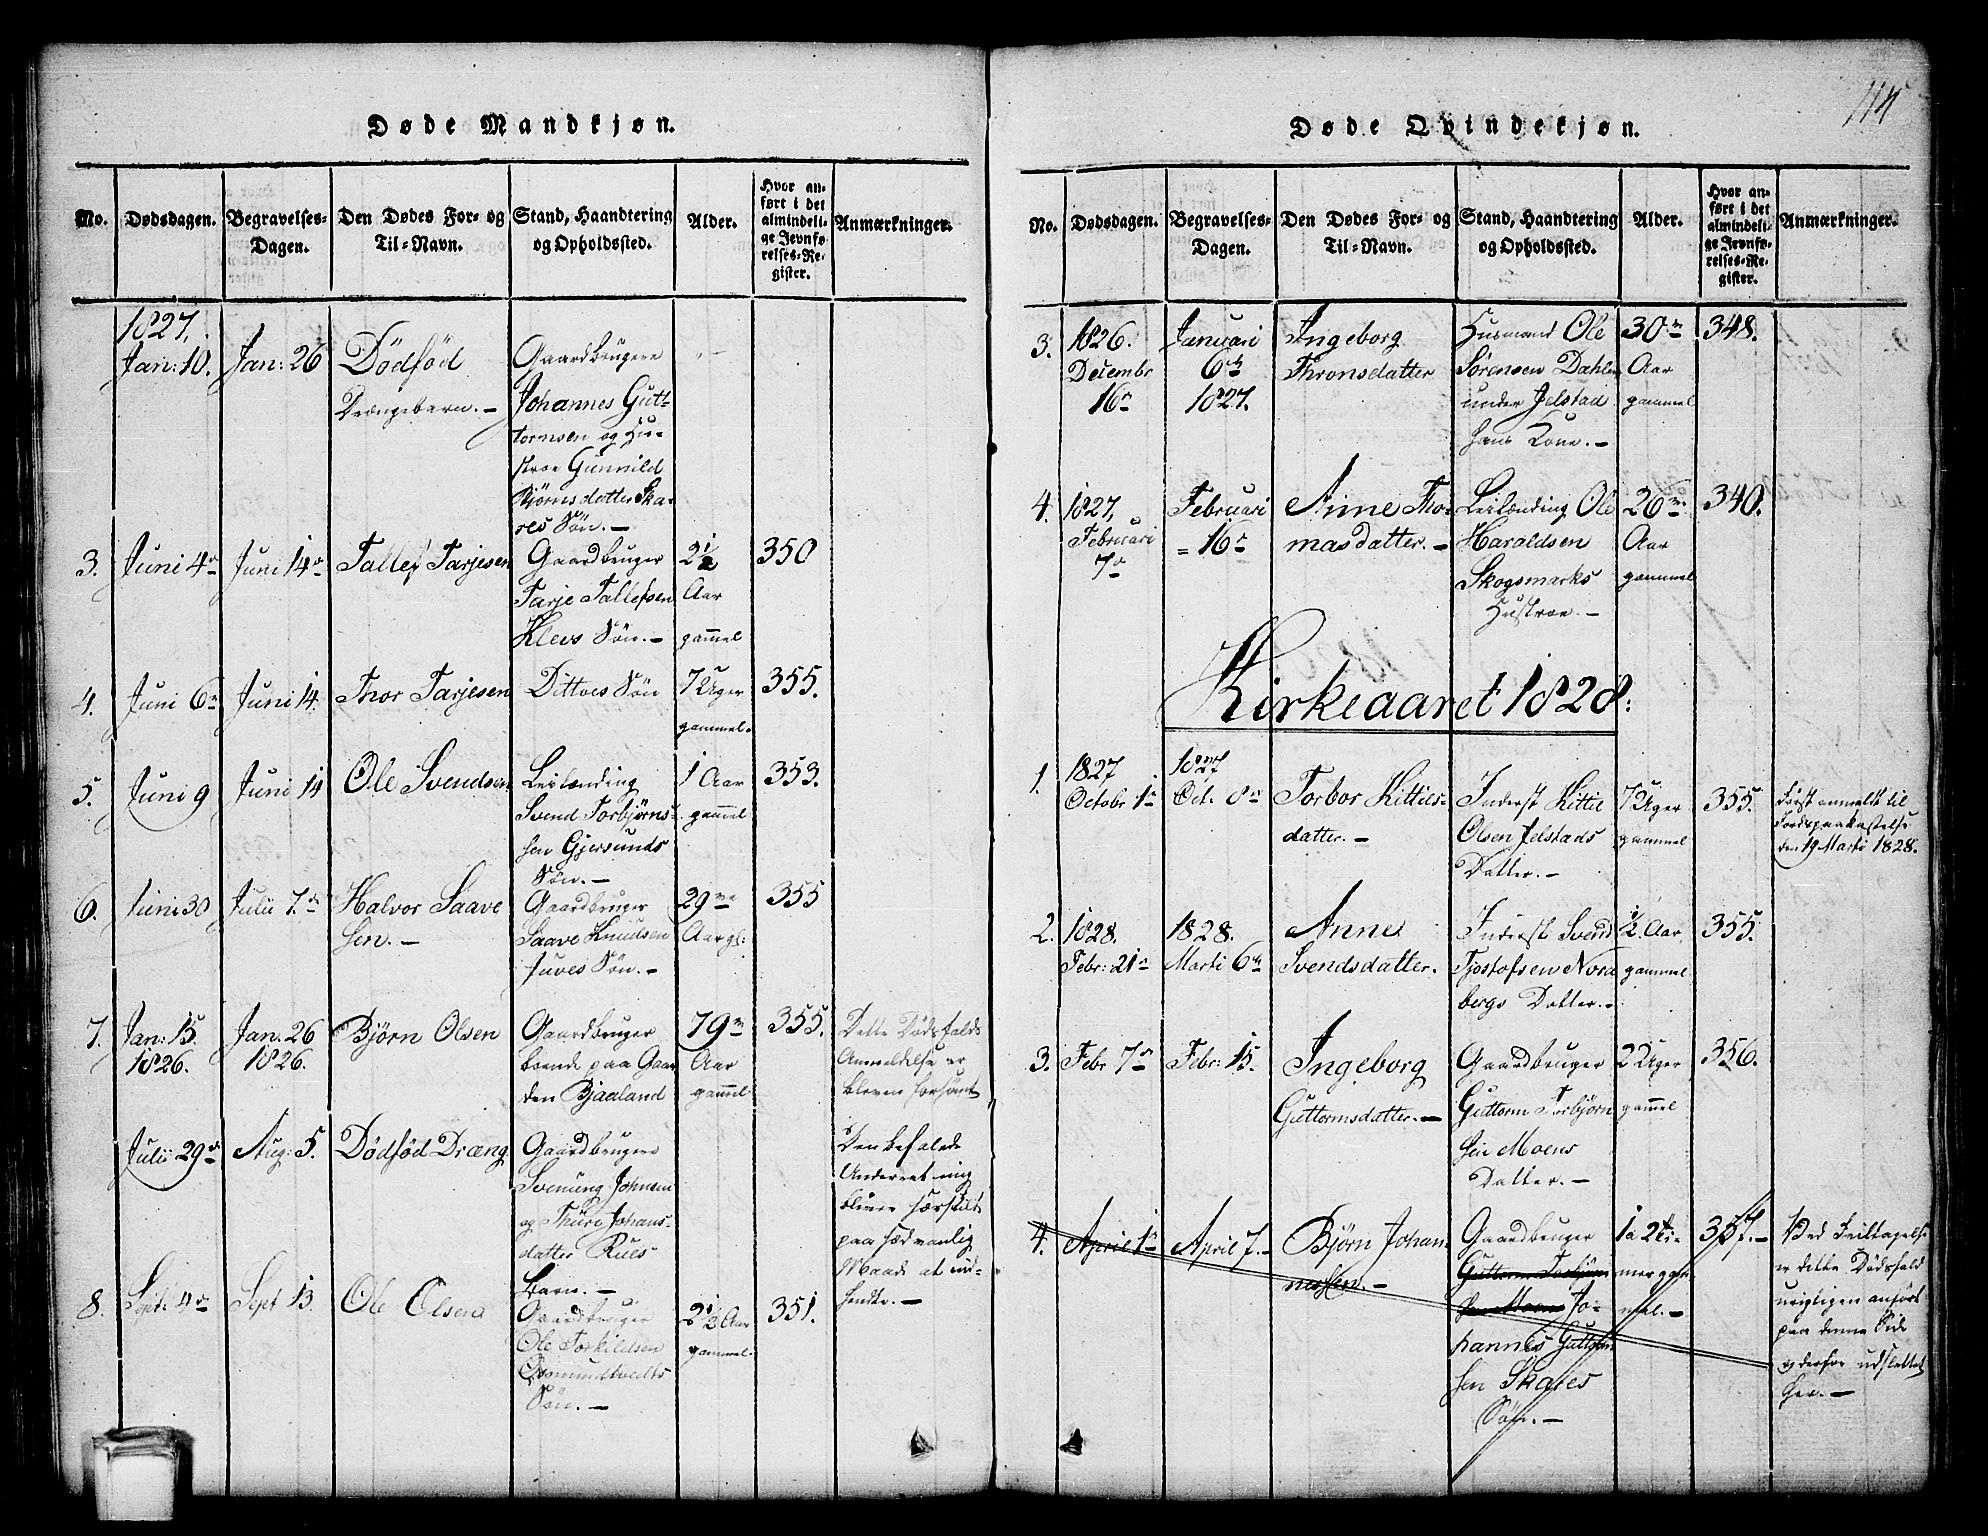 115
Døde Mandkjøn.
No.
Dødsdagen.
Begravelses-
Dagen.
Den Dødes For- og
Til-Navn.
Stand, Haandtering
og Opholdssted.
Alder.
Hvor an-
ført i det
almindeli-
ge Jevnfø-
relses-Re-
gister.
Anmærkninger.
1827.
Jan: 10.
Jan: 26
Dödföd
Drængebarn. -
Gaardbrugere
Johannes Gut-
tormsen og Hu-
stroe Gunnild
Bjørnsdatter Ska-
res Sön. -
3.
Juni 4de
Juni 14de
Tallef Tarjesen
Gaardbruger
Tarje Tallefsen
Klevs Sön. -
2 1/2
Aar
gammel
350
4.
Juni 6te
Juni 14.
Thor Tarjesen
Dittoes Sön
7 Uger
gammel.
355.
5.
Juni 9
Juni 14
Ole Svendsen
Leilænding
Svend Torbjörns-
sen Gjersunds
Sön. -
1 Aar
gammel
353.
6.
Juni 30
Julii 7.de
Halvor Saave
sen. -
Gaardbruger
Saave Knudsen
Juves Sön. -
29
Aar gl:
355
7.
Jan: 15.
1826.
Jan. 26
1826.
Björn Olsen
Gaardbruger
boende paa Gaar
den Bjaaland
79
Aar
gammel
355.
Dette Dödsfalds
Anmeldelse er
bleven forsömt
Julii 29de
Aug: 5.
Dödföd Dræng
Gaardbrugere
Svenung Johnsen
og Thüre Johans-
datter Rues
Barn. -
Den befalede
Underretning
bliver særskilt
paa sædvanlig
Maade at ind-
sendte. -
8.
Sept: 4de
Sept 13.
Ole Olsen
Gaardbruger
Ole Torkildsen
Osmundtvedts
Sön. -
2 1/2 Aar
gammel.
351.
Døde Qvindekjøn.
No.
Dødsdagen.
Begravelses-
Dagen.
Den Dødes For- og
Til-Navn.
Stand, Haandtering
og Opholdssted.
Alder.
Hvor an-
ført i det
almindeli-
ge Jevnfø-
relses-Re-
gister.
Anmærkninger.
3.
1826.
Decembr
16de
Januari
6te
1827.
Ingeborg
Thronsdatter
Husmand Ole
Sörensen Dahlen
under Jelstad
hans Kone. -
30
Aar
gammel
348.
4.
1827,
Februari
7de
Februari
= 16de
Anne Tho-
masdatter. -
Leilænding Ole
Haraldsen
Skogsmarks
Hustroe. -
26
Aar
gammel
340.
Kirkeaaret 1828:
1.
1827
Octobr 1de
1827
Oct. 8de
Torbor Kittils-
datter. -
Inderst Kittil
Olsen Jelstads
Datter. -
7 Uger
gammel
355.
Först anmeldt til
Jordspaakastelse
den 19 Marti 1828.
2.
1828.
Febr: 21de
1828.
Marti 6te
Anne
Svendsdatter.
Inderst Svend
Tjostofsen Nord
bergs Datter. -
1/2. Aar
gammel
355.
3.
Febr 7de
Febr: 15.
Ingeborg
Guttormsdatter. -
Gaardbruger
Guttorm Torbjörn
sen Moens
Datter. -
2 Uger
gammel
356.
4.
April 1de
April 7. -
Björn Johan-
nessen. -
Gaardbruger
Guttorm Torbjörn
sen Moens Jo-
hannes Guttorm
sen Skares
Sön. -
1 a 2 Ti-
mer gam-
mel. -
357. -
Ved Feiltagelse
er dette Dödsfald
urigtigen anfört
paa denne Side
og derfor udslettet
her. -